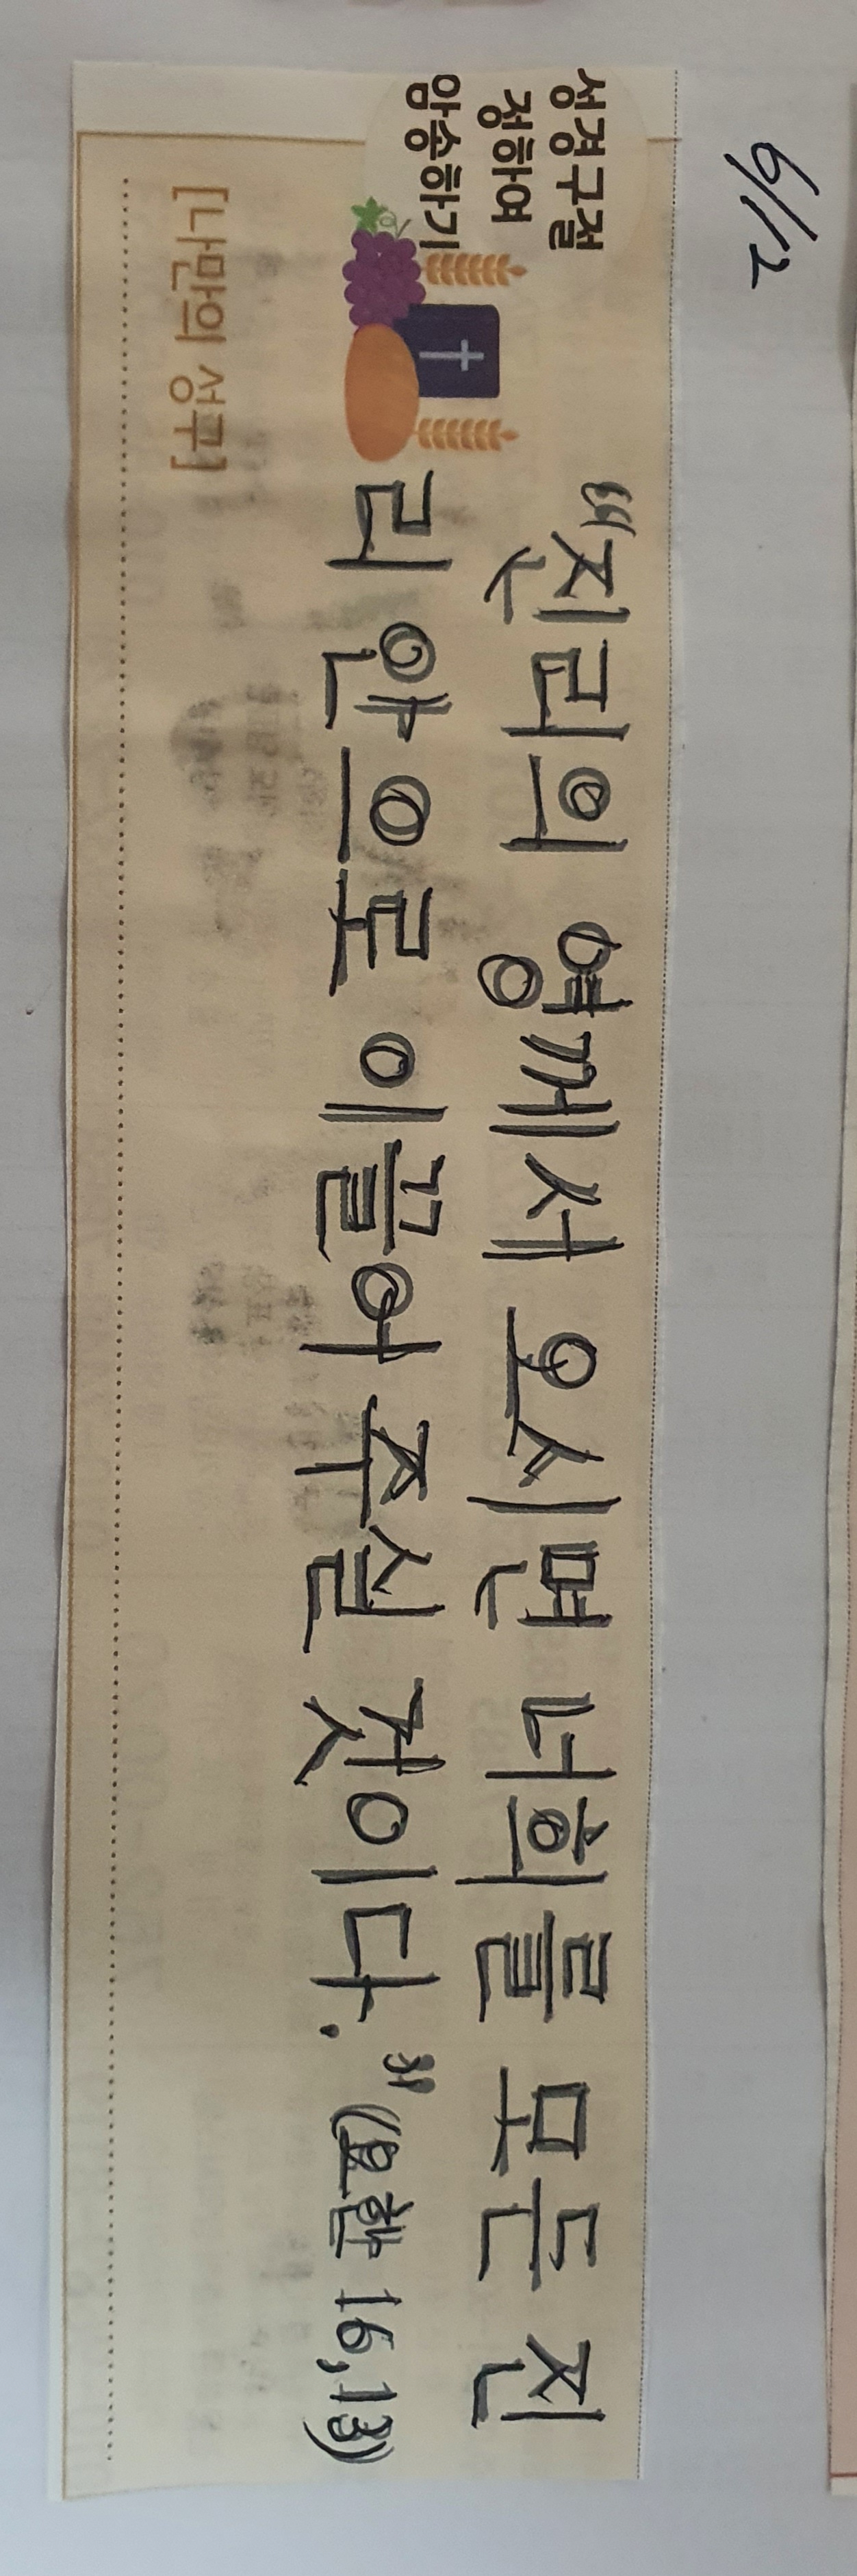 6/12
성경구절
정하여
암송하기
[나만의 성구]
"진리의 영께서 오시면 너희를 모든 진
리 안으로 이끌어 주실 것이다." (요한 16,13)